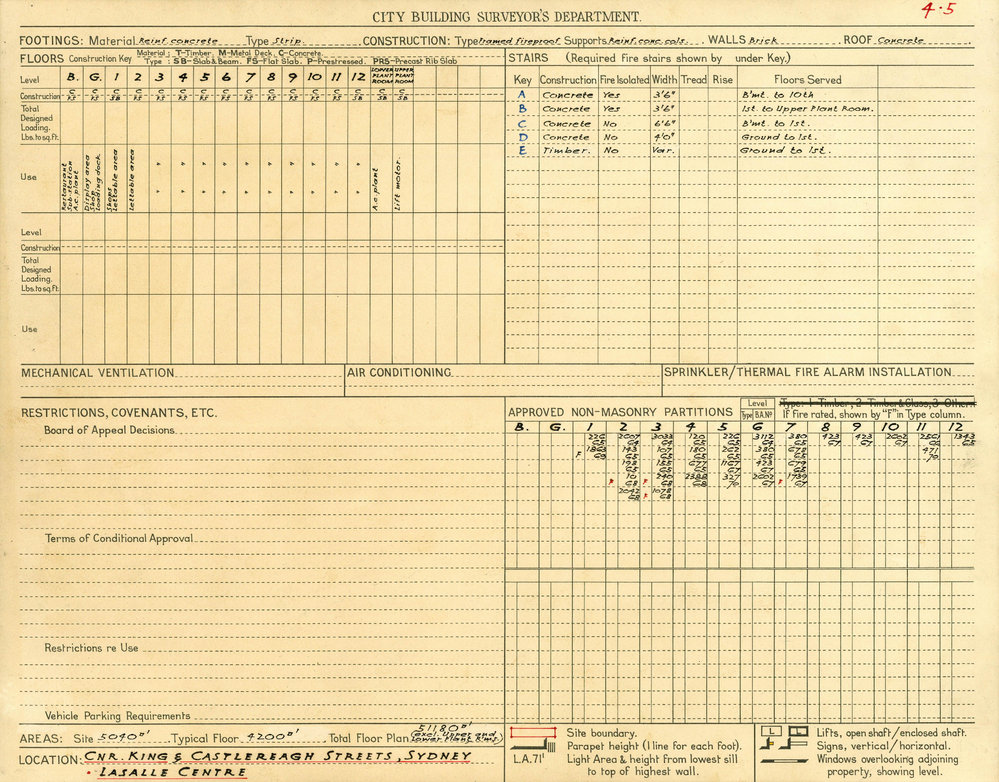 4.5
CITY BUILDING SURVEYOR'S DEPARTMENT.
FOOTINGS: Material Reinf. concrete Type Strip. CONSTRUCTION: Type Framed fireproof Supports Reinf. conc. cols. WALLS Brick ROOF Concrete
FLOORS Construction Key Material; T-Timber. M-Metal Deck. C-Concrete.
Type : SB-Slab&Beam. FS-Flat Slab. P-Prestressed. PRS-Precast Rib Slab
Level B. G. 1 2 3 4 5 6 7 8 9 10 11 12 LOWER PLANT ROOM UPPER PLANT ROOM
Construction C C C C C C C C C C C C C C C C
FS FS SB FS FS FS FS FS FS FS FS FS FS FS SB SB
Total
Designed
Loading.
Lbs.to sq.ft.
Use
Restaurant
Sub-station
A.c. plant
Display area
Shop
Loading dock.
Shops
Lettable area
Lettable area
" " " " " " " " " "
" " " " " " " " " "
A.c. plant
Lift motor.
Level
Construction
Total
Designed
Loading.
Lbs.to sq.ft.
Use
STAIRS (Required fire stairs shown by under Key.)
Key Construction Fire Isolated Width Tread Rise Floors Served
A Concrete Yes 3'6" B'mt. to 10th
B Concrete Yes 3'6" 1st. to Upper Plant Room.
C Concrete No 6'6" B'mt. to 1st.
D Concrete No 4'0" Ground to 1st.
E Timber. No Var. Ground to 1st.
MECHANICAL VENTILATION AIR CONDITIONING SPRINKLER/THERMAL FIRE ALARM INSTALLATION
RESTRICTIONS, COVENANTS, ETC.
Board of Appeal Decisions
Terms of Conditional Approval
Restrictions re Use
Vehicle Parking Requirements
APPROVED NON-MASONRY PARTITIONS Level Type B.A.Nº Type: 1 Timber, 2 Timber & Glass, 3 Others
If fire rated, shown by "F" in Type column.
B. G. 1 2 3 4 5 6 7 8 9 10 11 12
226 2007 3033 120 226 3112 380 423 423 2602 2561 1343
65 64 64 65 65 64 65 67 67 67 68 65
F 1863 143 107 180 262 380 678 471
68 65 65 65 65 65 65 70
198 155 677 1167 423 679
65 65 65 65 67 65
F 10 F 240 2388 327 2602 F 1739
68 68 68 70 67 67
2042 1078
68 68
AREAS: Site 5040□' Typical Floor 4200□' Total Floor Plan 51180□' (excl. Upper and Lower Plant Rms.)
LOCATION: CNR. KING & CASTLEREAGH STREETS, SYDNEY
LASALLE CENTRE
Site boundary.
Parapet height (1 line for each foot).
L.A.71' Light Area & height from lowest sill
to top of highest wall.
L Lifts, open shaft/enclosed shaft.
Signs, vertical/horizontal.
Windows overlooking adjoining
property, showing level.